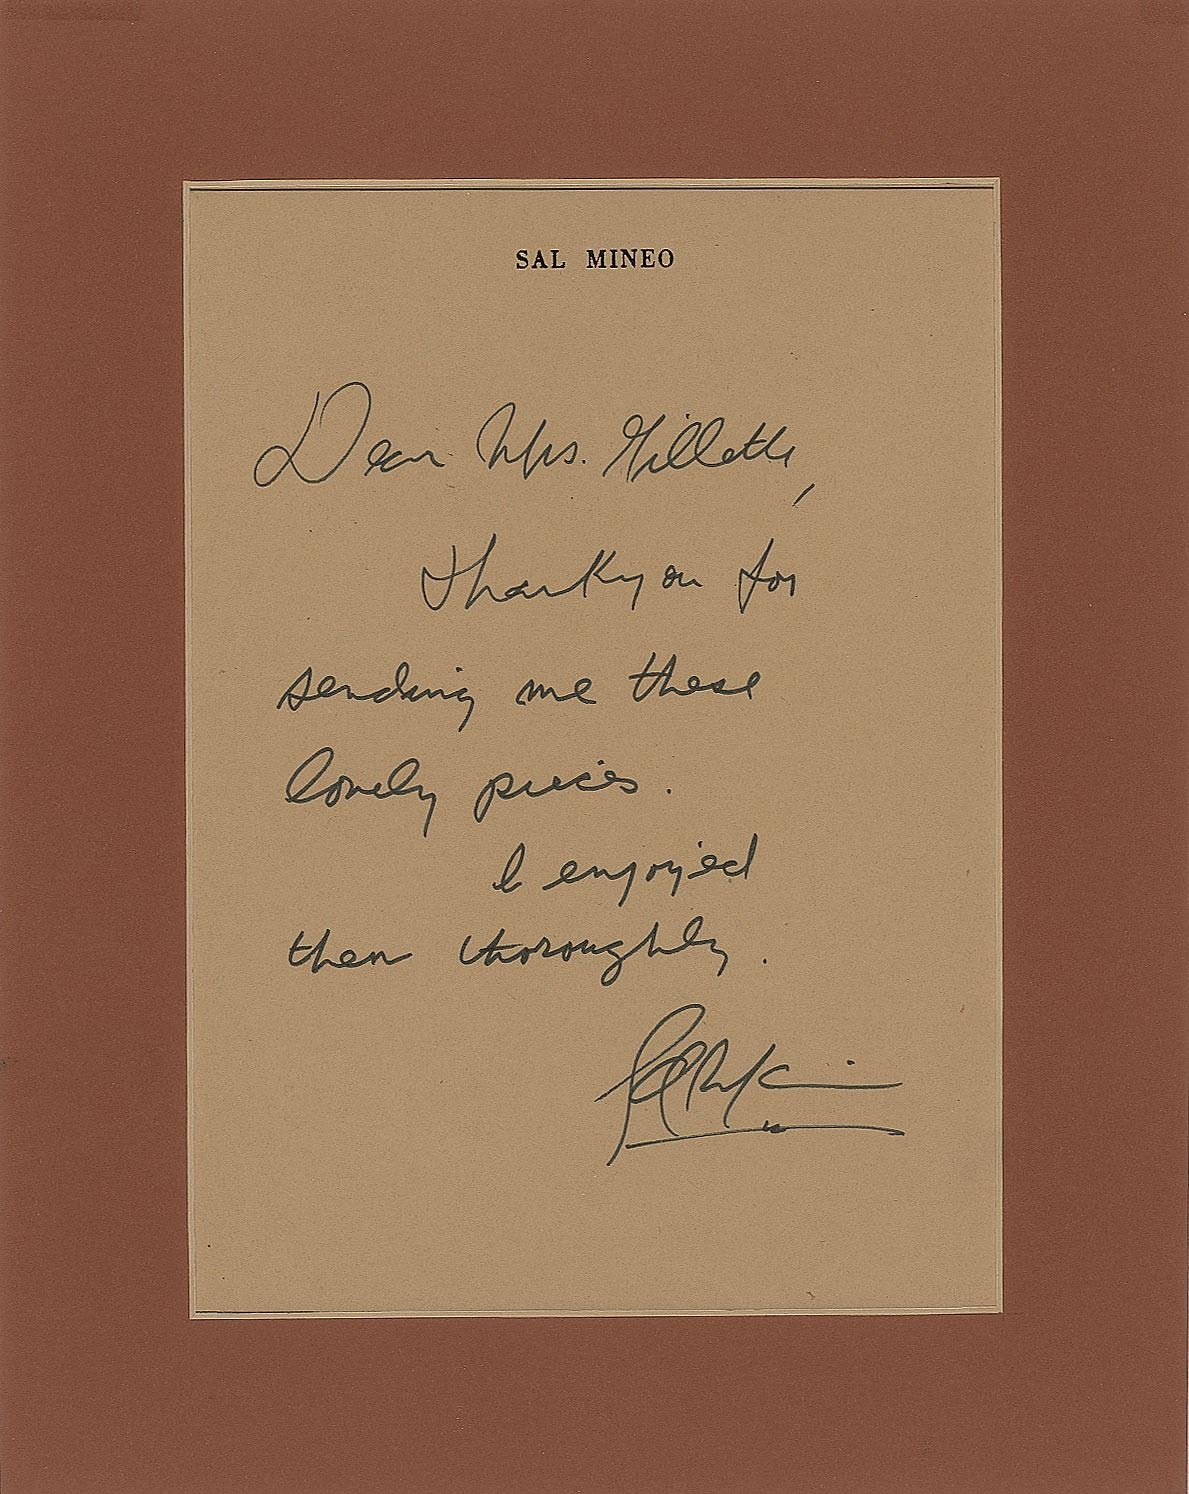 SAL MINEO
Dear Mrs. Gillette,
Thank you for
sending me these
lovely pieces.
I enjoyed
them thoroughly.
Sal Mineo